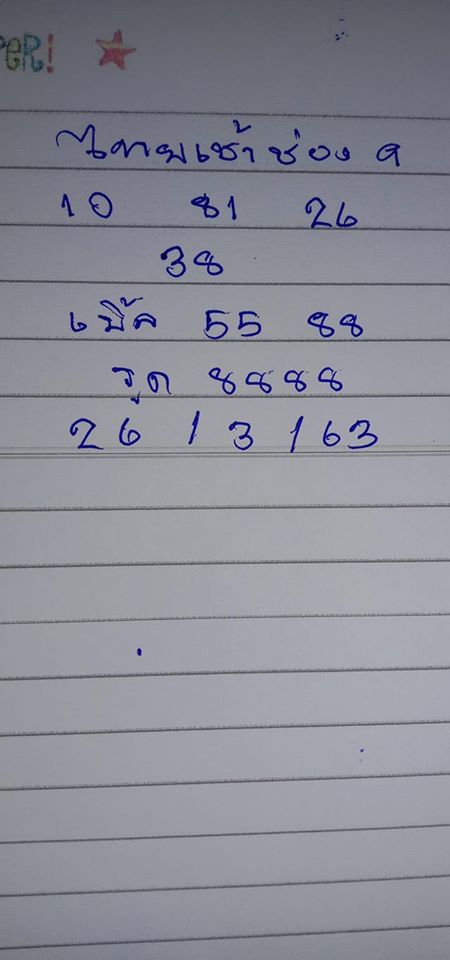 PER!
ไทยเช้าช่อง 9
10 81 26
38
เบิ้ล 55 88
รูด 8888
26 / 3 / 63